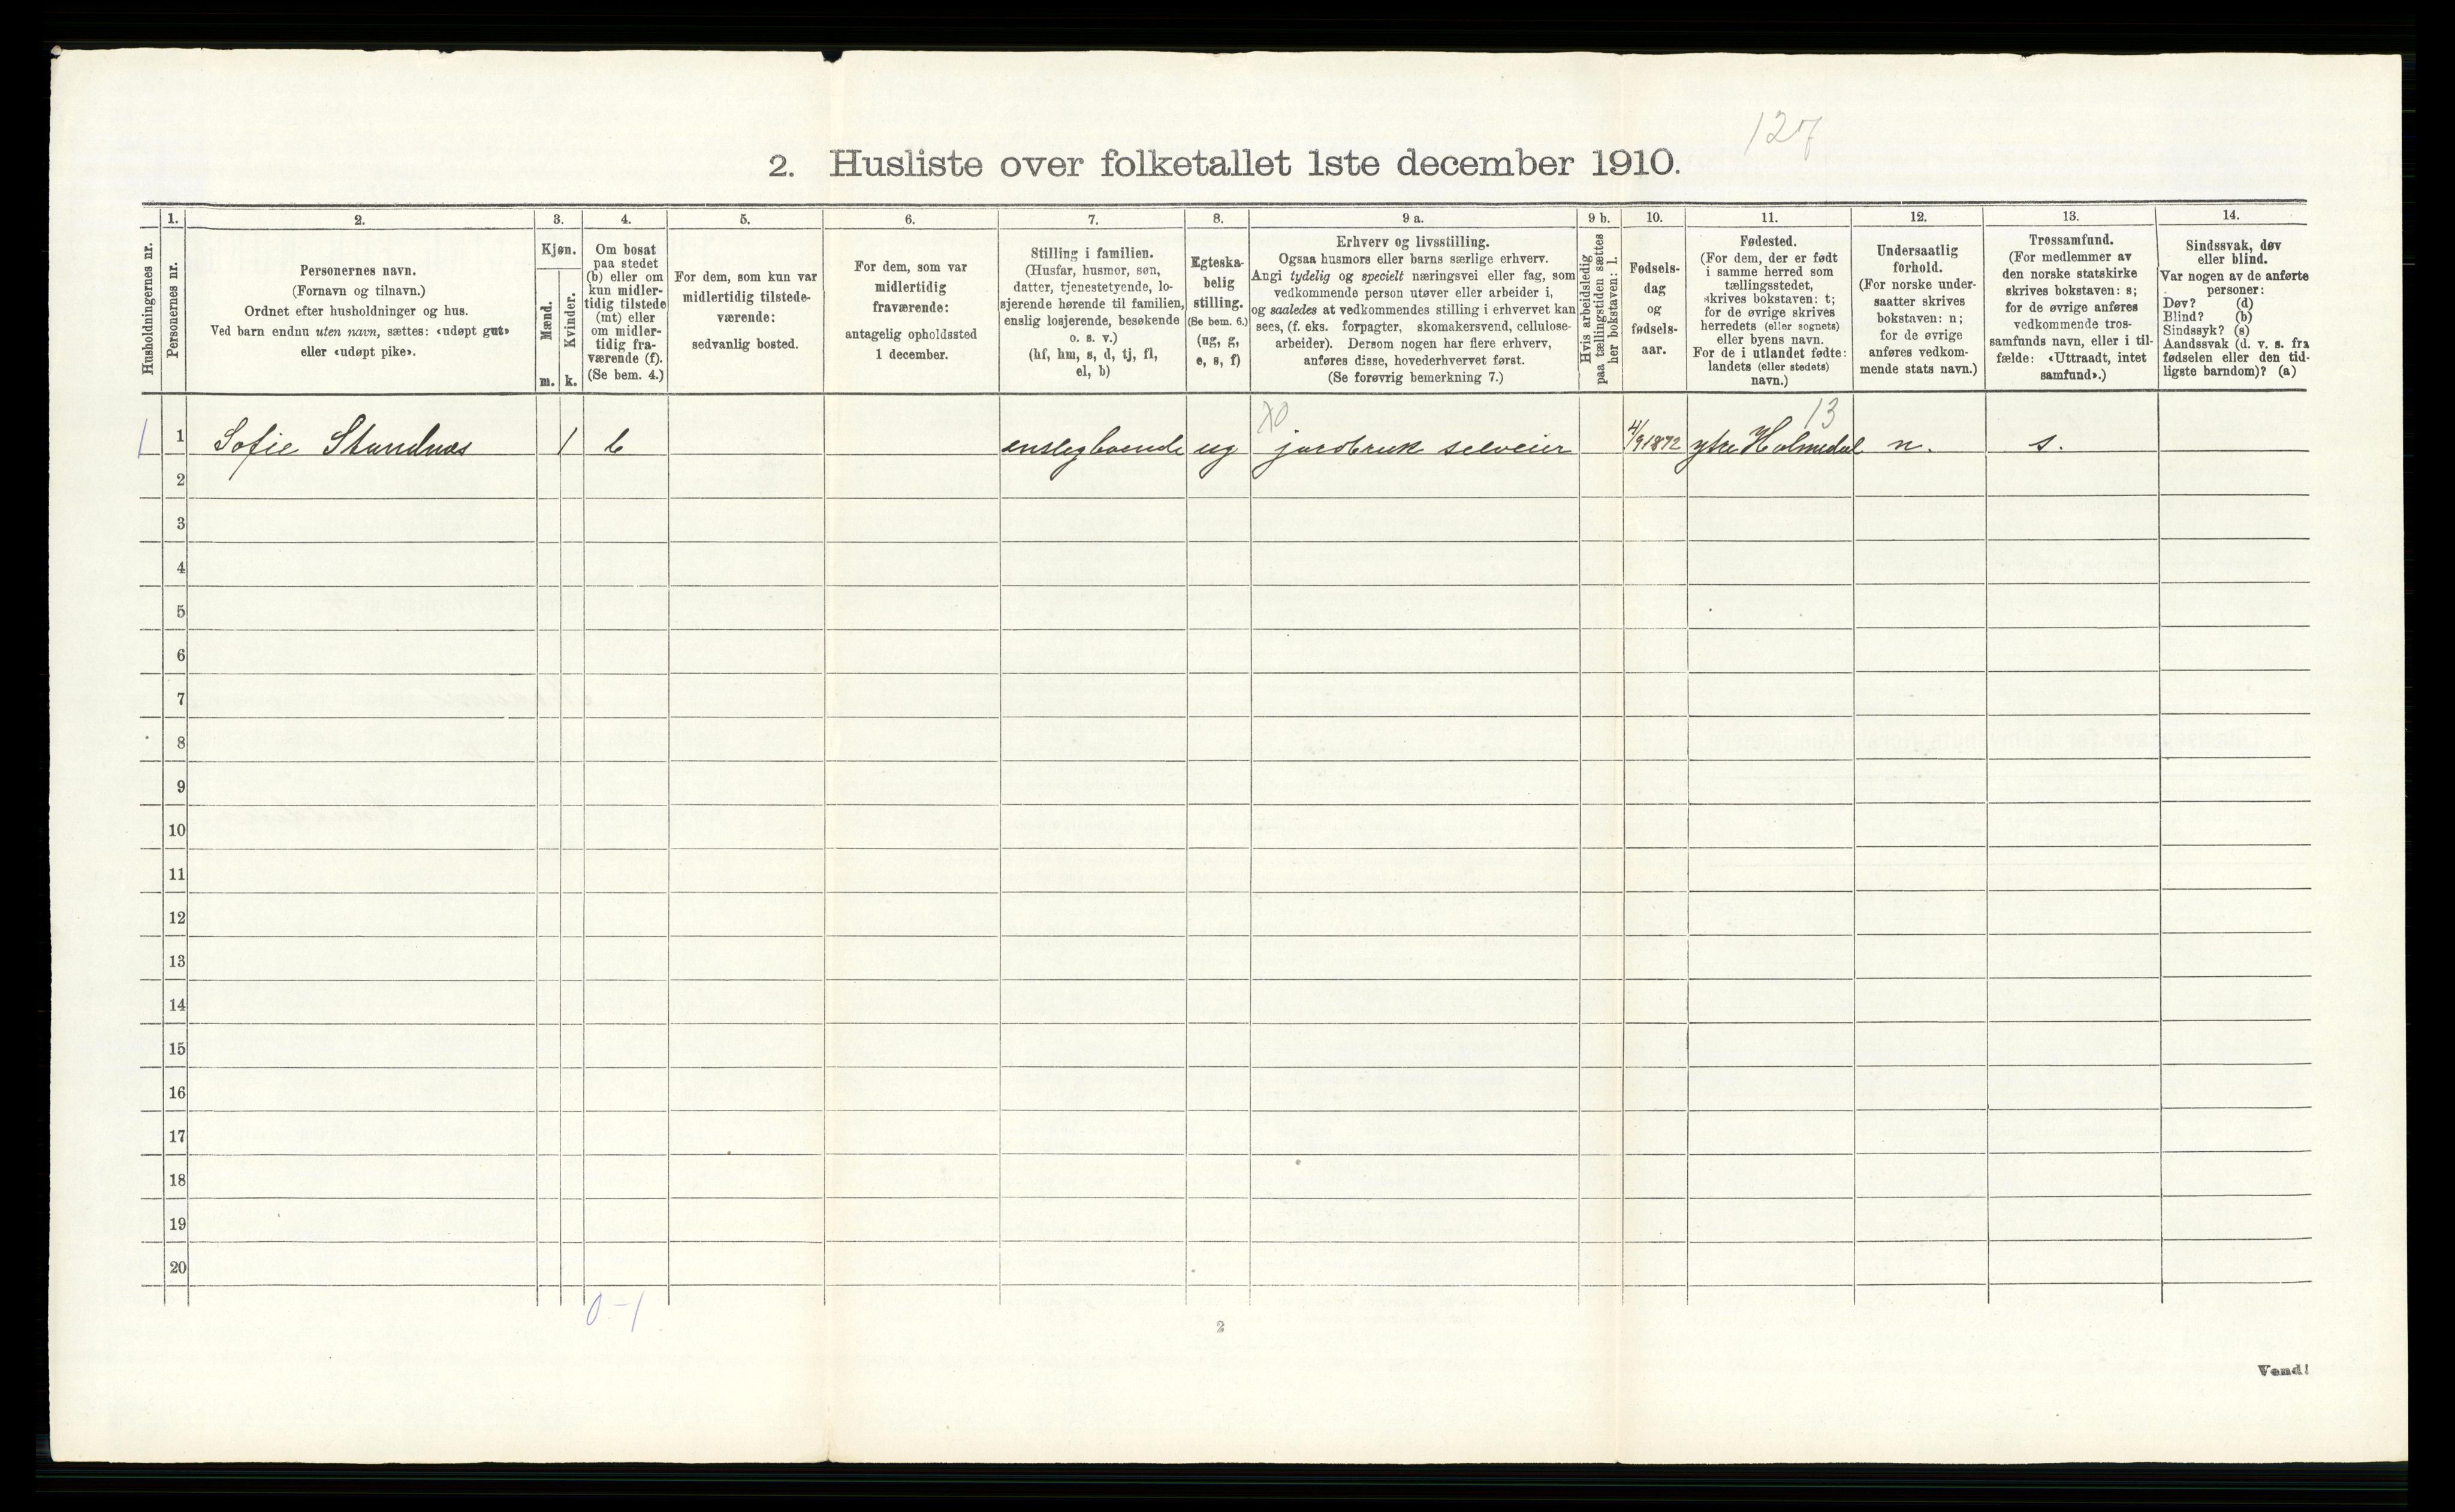 127
2. Husliste over folketallet 1ste december 1910.
Husholdningernes nr.
1.
Personernes nr.
2.
Personernes navn.
(Fornavn og tilnavn.)
Ordnet efter husholdninger og hus.
Ved barn endnu uten navn, sættes: «udøpt gut»
eller «udøpt pike».
3.
Kjøn.
Mænd.
Kvinder.
m. k.
4.
Om bosat
paa stedet
(b) eller om
kun midler-
tidig tilstede
(mt) eller
om midler-
tidig fra-
værende (f).
(Se bem. 4.)
5.
For dem, som kun var
midlertidig tilstede-
værende:
sedvanlig bosted.
6.
For dem, som var
midlertidig
fraværende:
antagelig opholdssted
1 december.
7.
Stilling i familien.
(Husfar, husmor, søn,
datter, tjenestetyende, lo-
sjerende hørende til familien,
enslig losjerende, besøkende
o. s. v.)
(hf, hm, s, d, tj, fl,
el, b)
8.
Egteska-
belig
stilling.
(Se bem. 6.)
(ug, g,
e, s, f)
9 a.
Erhverv og livsstilling.
Ogsaa husmors eller barns særlige erhverv.
Angi tydelig og specielt næringsvei eller fag, som
vedkommende person utøver eller arbeider i,
og saaledes at vedkommendes stilling i erhvervet kan
sees, (f. eks. forpagter, skomakersvend, cellulose-
arbeider). Dersom nogen har flere erhverv,
anføres disse, hovederhvervet først.
(Se forøvrig bemerkning 7.)
9 b.
Hvis arbeidsledig
paa tællingstiden sættes
her bokstaven: l.
10.
Fødsels-
dag
og
fødsels-
aar.
11.
Fødested.
(For dem, der er født
i samme herred som
tællingsstedet,
skrives bokstaven: t;
for de øvrige skrives
herredets (eller sognets)
eller byens navn.
For de i utlandet fødte:
landets (eller stedets)
navn.)
12.
Undersaatlig
forhold.
(For norske under-
saatter skrives
bokstaven: n;
for de øvrige
anføres vedkom-
mende stats navn.)
13.
Trossamfund.
(For medlemmer av
den norske statskirke
skrives bokstaven: s;
for de øvrige anføres
vedkommende tros-
samfunds navn, eller i til-
fælde: «Uttraadt, intet
samfund».)
14.
Sindssvak, døv
eller blind.
Var nogen av de anførte
personer:
Døv? (d)
Blind? (b)
Sindssyk? (s)
Aandssvak (d. v. s. fra
fødselen eller den tid-
ligste barndom)? (a)
X0 13
1 1 Sofie Strandnæs 1 b enslegboende ug jordbruk selveier 4/9 1872 ytre Holmedal n. s.
2
3
4
5
6
7
8
9
10
11
12
13
14
15
16
17
18
19
20
0-1
2
Vend!